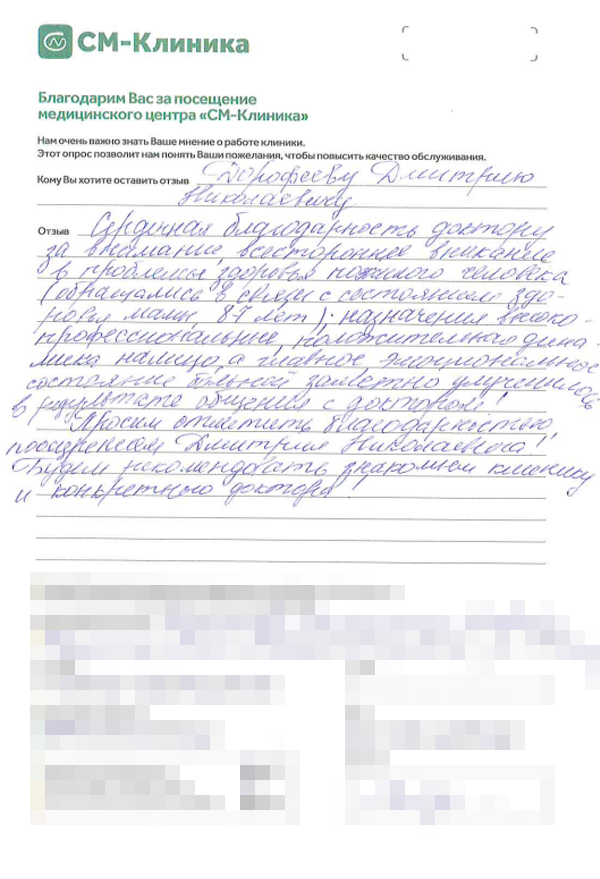 СМ-Клиника
Благодарим Вас за посещение
медицинского центра «СМ-Клиника»
Нам очень важно знать Ваше мнение о работе клиники.
Этот опрос позволит нам понять Ваши пожелания, чтобы повысить качество обслуживания.
Кому Вы хотите оставить отзыв Дорофееву Дмитрию
Николаевичу
Отзыв Сердечная благодарность доктору
за внимание, всестороннее вникание
в проблемы здоровья пожилого человека
(обращались в связи с состоянием здо-
ровья мамы, 87 лет). назначения высоко-
профессиональные, положительная дина-
мика налицо, а главное, эмоциональное
состояние больной заметно улучшилось
в результате общения с доктором!
Просим отметить благодарностью,
Дмитрия Николаевича!
Будем рекомендовать знакомым клинику
и конкретного доктора!